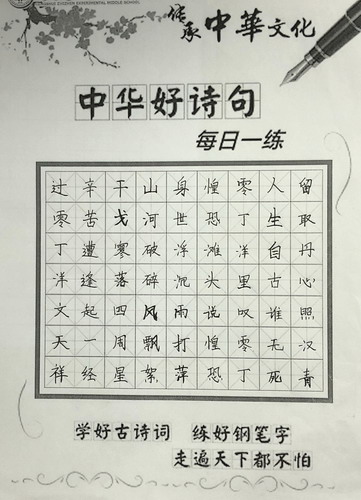 EXPERIMENTAL MIDDLE SCHOOL
传承中華文化
中华好诗句
每日一练
过零丁洋文天祥
辛苦遭逢起一经
干戈寥落四周星
山河破碎风飘絮
身世浮沉雨打萍
惶恐滩头说惶恐
零丁洋里叹零丁
人生自古谁无死
留取丹心照汗青
学好古诗词 练好钢笔字
走遍天下都不怕